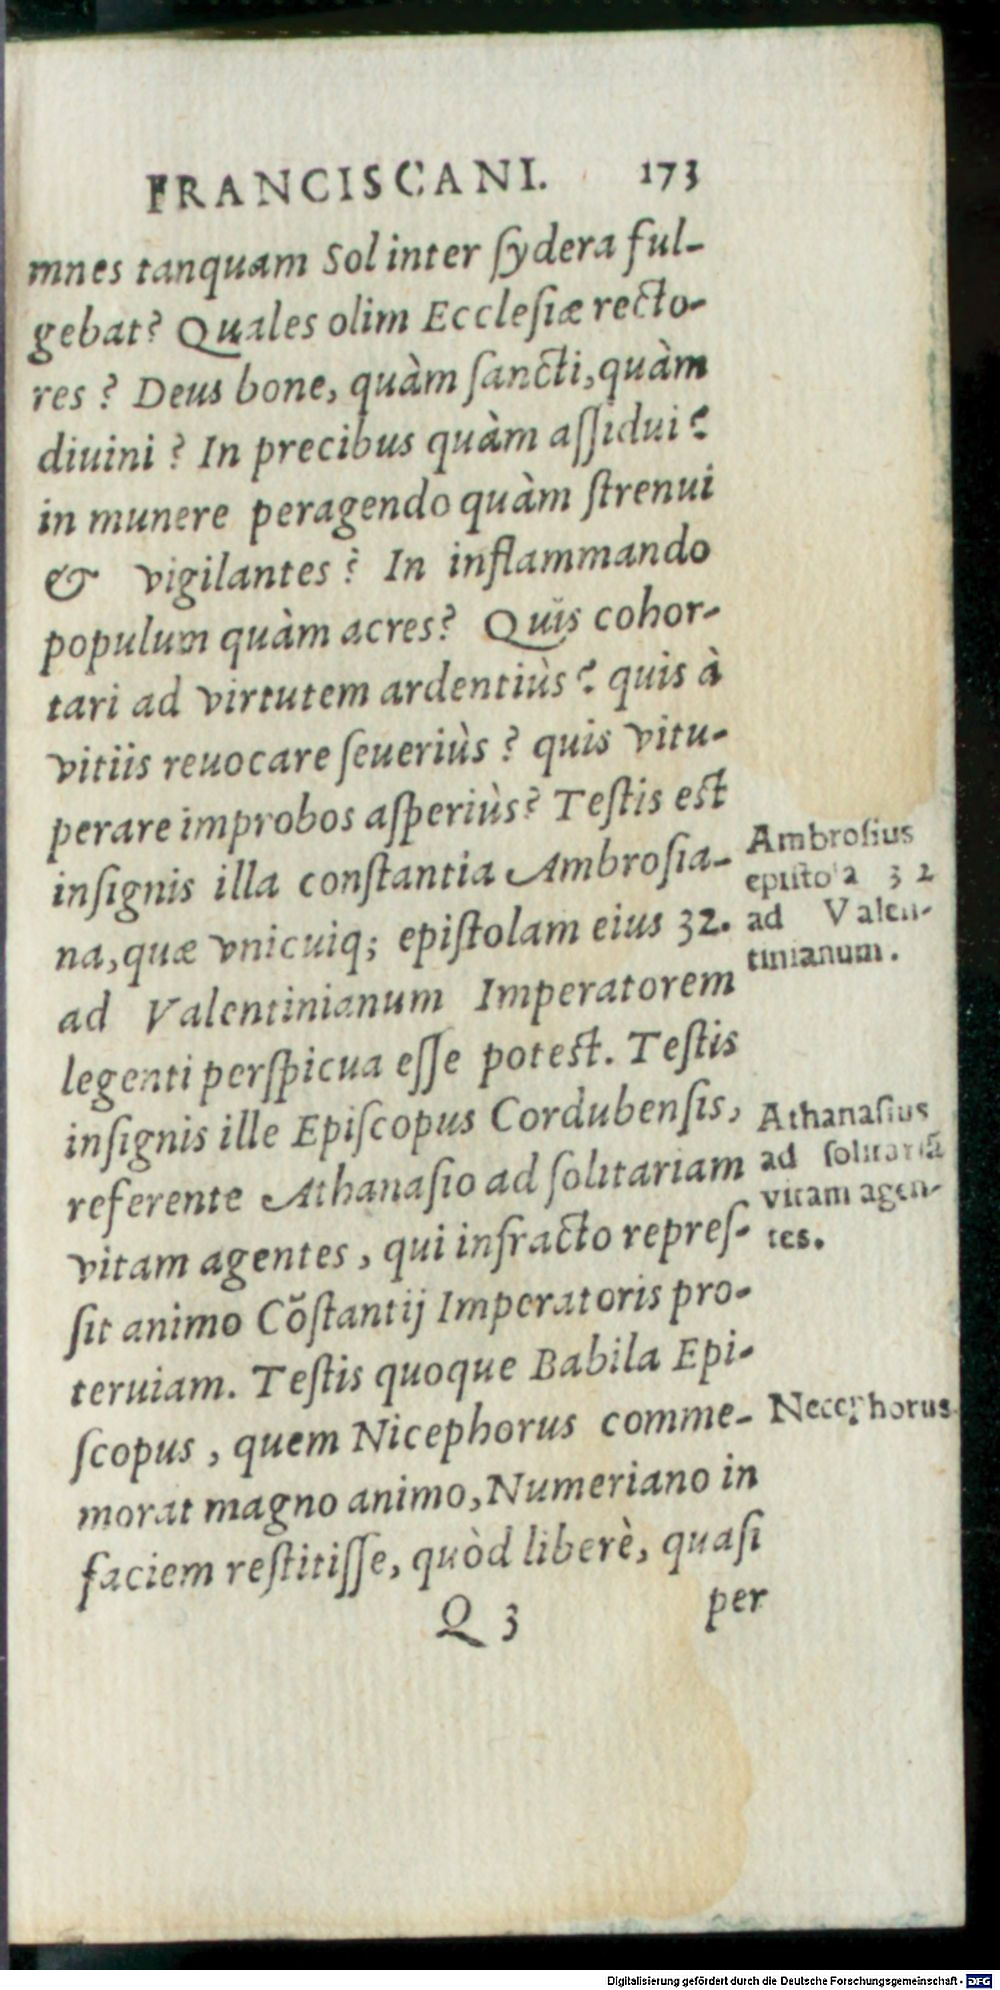 FRANCISCANI. 173
mnes tanquam Sol inter ſydera ful-
gebat? Quales olim Eccleſiæ recto-
res? Deus bone, quàm ſancti, quàm
diuini? In precibus quàm aſſidui?
in munere peragendo quàm ſtrenui
& vigilantes? In inflammando
populum quàm acres? Quis cohor-
tari ad virtutem ardentiùs? quis à
vitiis reuocare ſeueriùs? quis vitu-
perare improbos aſperiùs? Teſtis eſt
inſignis illa conſtantia Ambroſia-
na, quæ vnicuiq; epiſtolam eius 32.
ad Valentinianum Imperatorem
legenti perſpicua eſſe poteſt. Teſtis
inſignis ille Epiſcopus Cordubenſis,
referente Athanaſio ad ſolitariam
vitam agentes, qui infracto repreſ-
ſit animo Cõſtantij Imperatoris pro-
teruiam. Teſtis quoque Babila Epi-
ſcopus, quem Nicephorus comme-
morat magno animo, Numeriano in
faciem reſtitiſſe, quòd liberè, quaſi
Q 3 per
Ambroſius
epiſtola 32
ad Valen-
tinianum.
Athanaſius
ad ſolitariã
vitam agen-
tes.
Necephorus
Digitalisierung gefördert durch die Deutsche Forschungsgemeinschaft - DFG